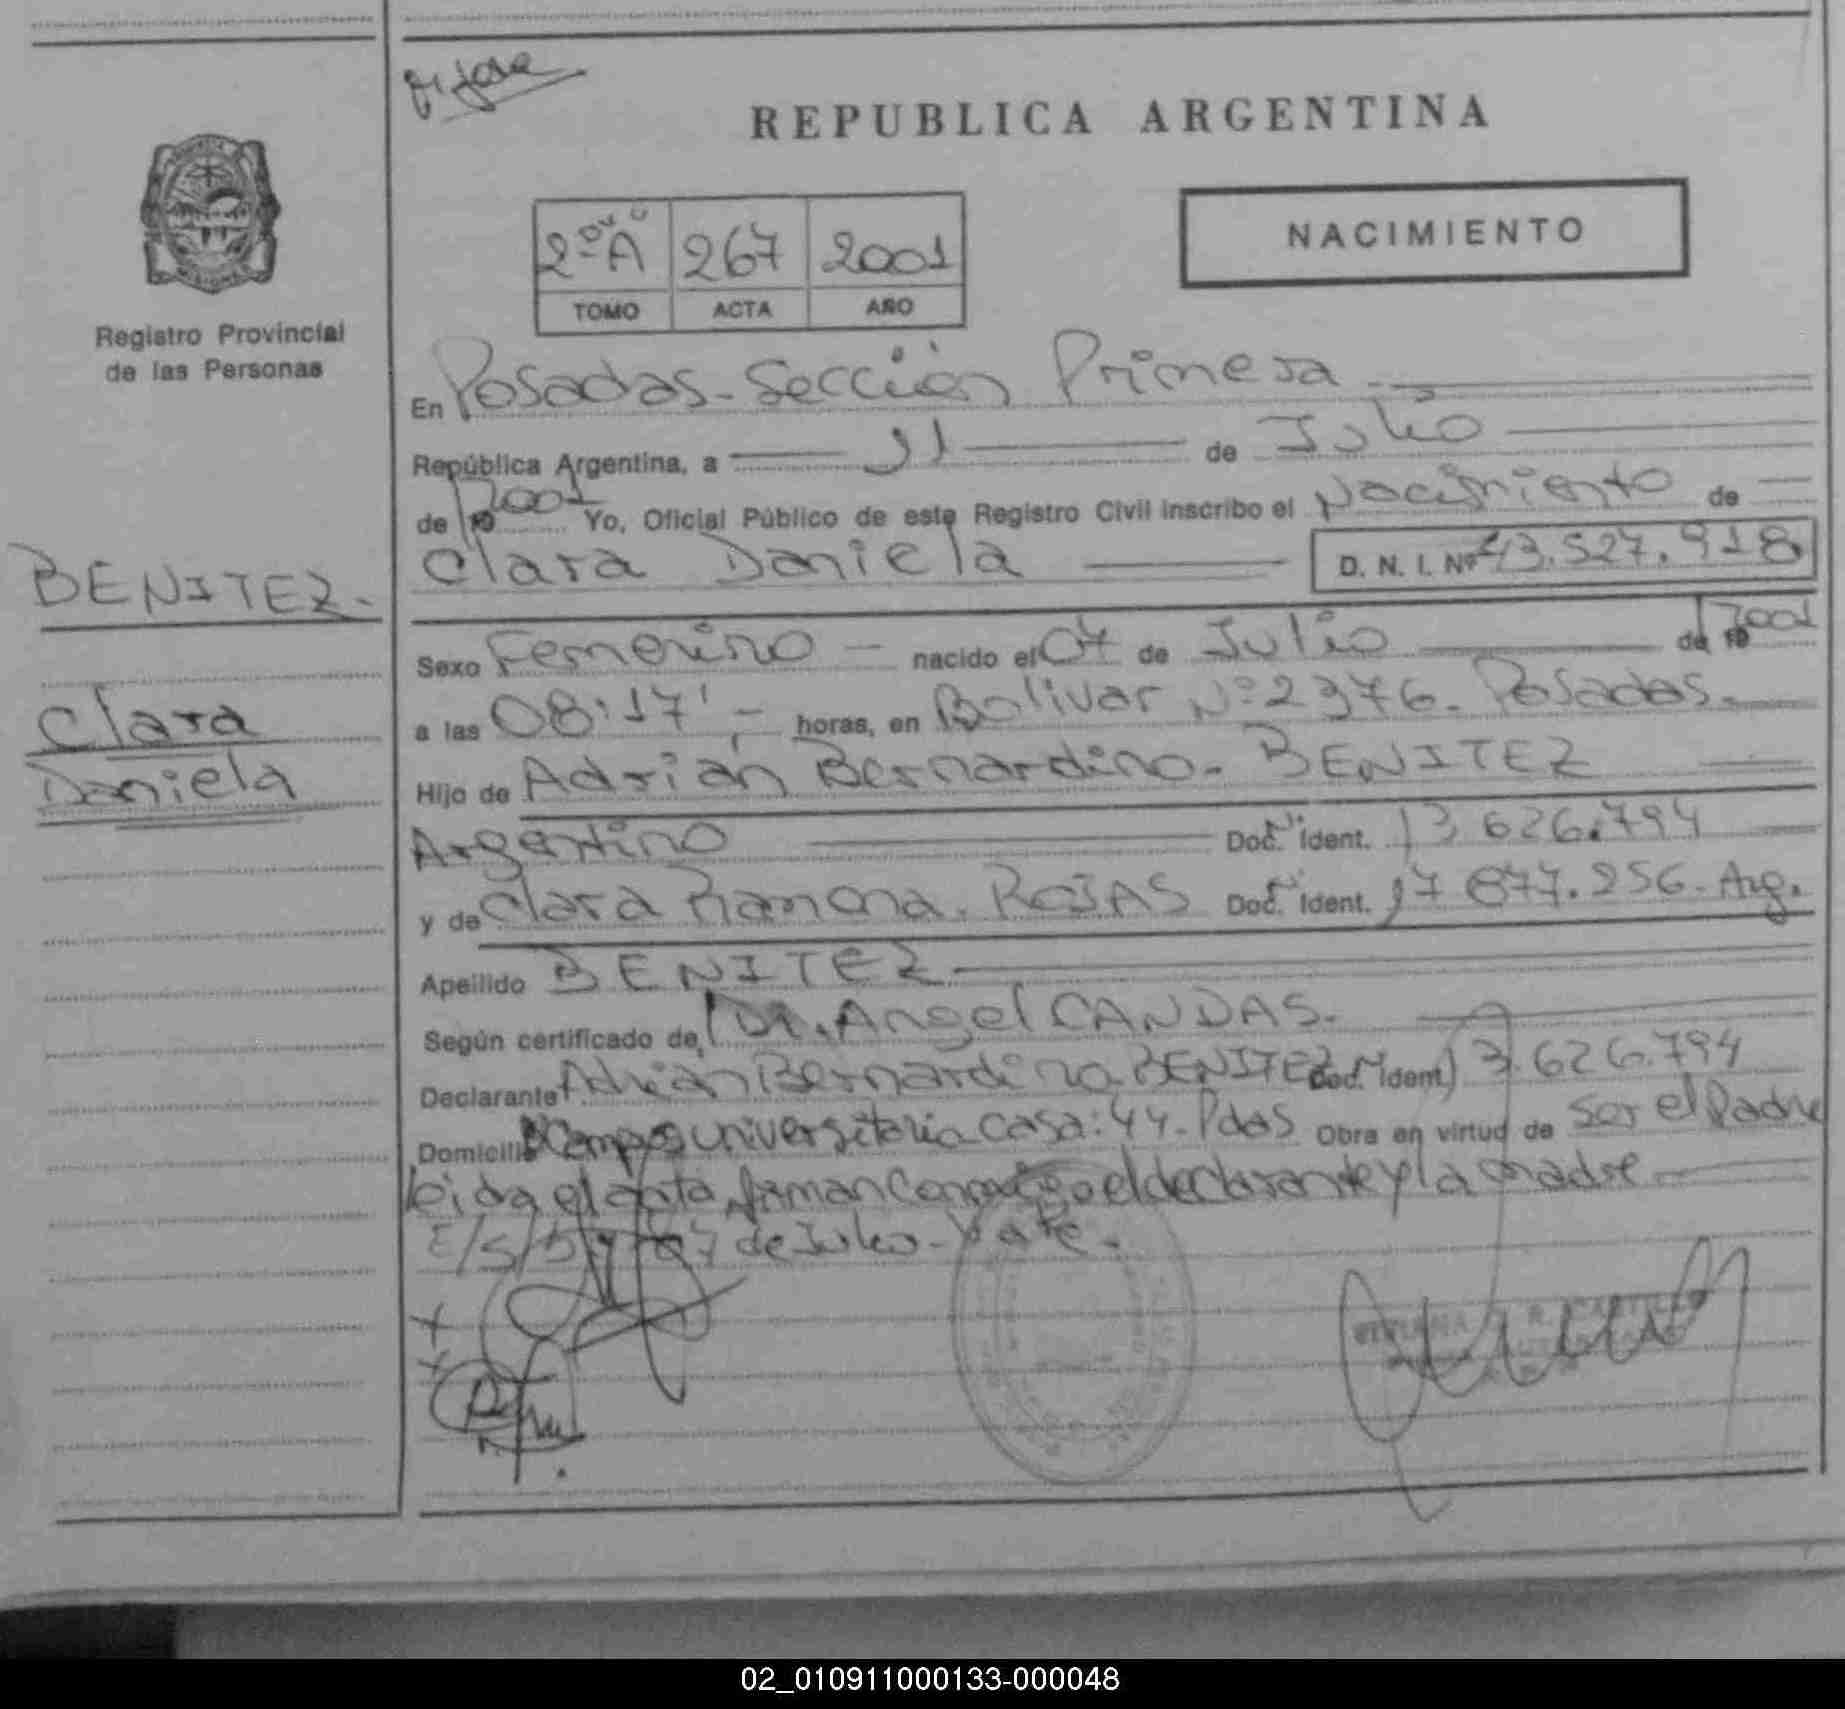 REPUBLICA ARGENTINA
2º A 267 2001
TOMO ACTA AÑO
NACIMIENTO
Registro Provincial
de las Personas
BENITEZ.
Clara
Daniela
En Posadas - Sección Primera
República Argentina, a 11 de Julio
de 2001 Yo, Oficial Público de este Registro Civil inscribo el Nacimiento de
Clara Daniela D. N. I. Nº 43.527.918
Sexo Femenino - nacido el 04 de Julio de 2001
a las 08:17' - horas, en Bolivar Nº 2376. Posadas.
Hijo de Adrián Bernardino. BENITEZ
Argentino Doc. Ident. 13.626.794
y de Clara Ramona. ROJAS Doc. Ident. 17.877.256. Arg.
Apellido BENITEZ
Según certificado de Dr. Angel CANDAS.
Declarante Adrián Bernardino BENITEZ Doc. Ident. 13.626.794
Domicilio Campus universitario casa: 44. Pdas Obra en virtud de ser el Padre
leida el acta, firman conmigo el declarante y la madre
de Julio. Vale.
02_010911000133-000048